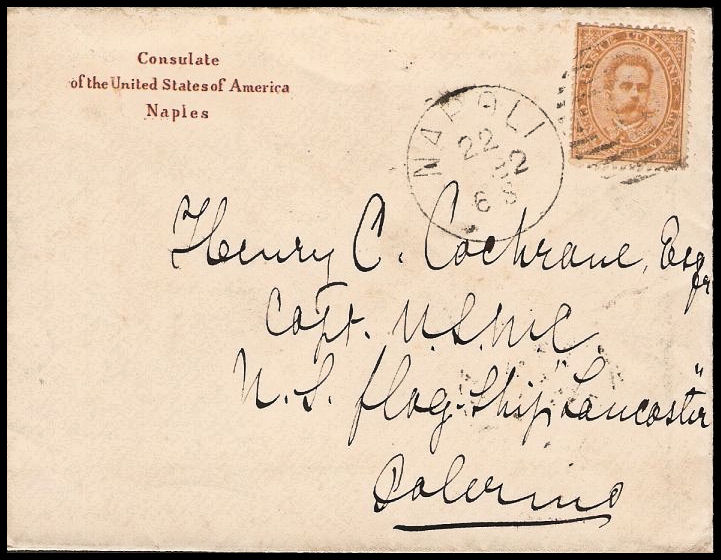 Consulate
of the United States of America
Naples
POSTE ITALIANE
NAPOLI
22
82
6 S
Henry C. Cochrane, Esqr
Capt. U.S.M.C.
U.S. flag-Ship "Lancaster"
Palermo